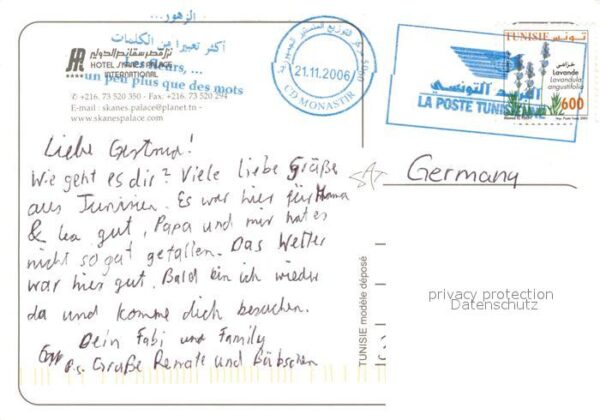 الزهور...
أكثر تعبيرا من الكلمات
Les fleurs, ...
un peu plus que des mots
HOTEL SKANES PALACE
INTERNATIONAL
✆ +216. 73 520 350 - Fax. +216. 73 520 294
E-mail : skanes.palace@planet.tn -
www.skanespalace.com
21.11.2006
CD MONASTIR
البريد التونسي
LA POSTE TUNISIENNE
TUNISIE تونس
خزامى
Lavande
Lavandula
angustifolia
600
Liebe
Wie geht es dir? Viele liebe Grüße
aus Tunisien. Es war hier für Mama
& Lea gut, Papa und mir hat es
nicht so gut gefallen. Das Wetter
war hier gut. Bald bin ich wieder
da und komme dich besuchen.
Dein Fabi und Family
P.S. Grüße Renate und
Germany
TUNISIE modèle déposé
privacy protection
Datenschutz